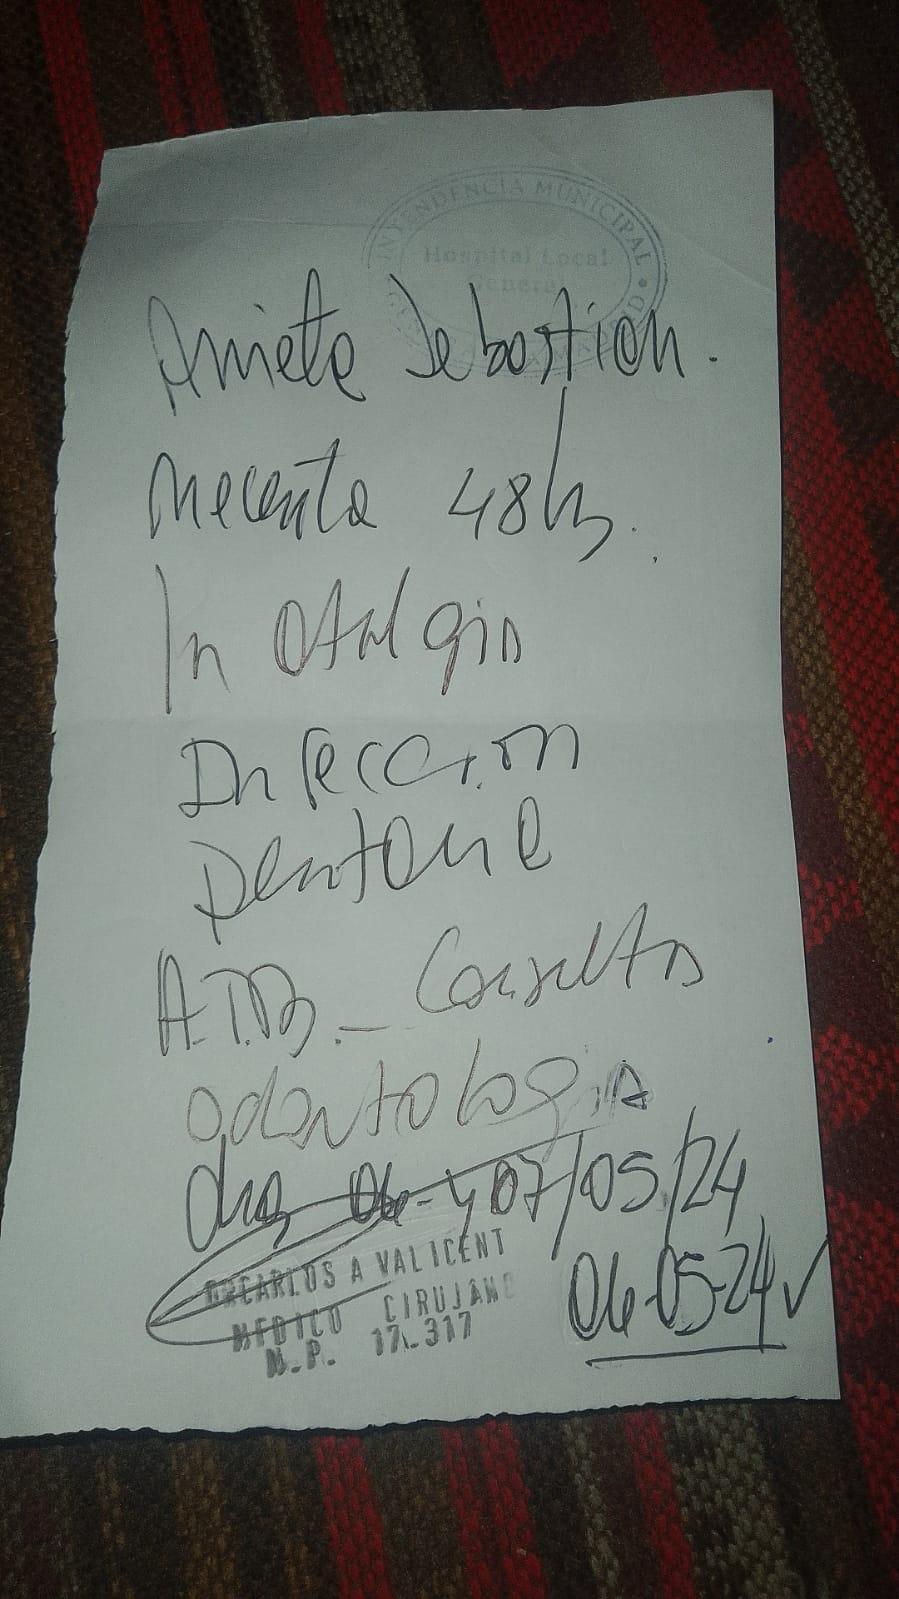 INTENDENCIA MUNICIPAL
Hospital Local
General
Sebastian.
Necesita 48hs.
Otalgia
Infeccion
Dentaria
A.T.B. - Consulta
odontologia
dia 06 y 07/05/24
DR CARLOS A VALICENT
MEDICO CIRUJANO
M.P. 17.317
06-05-24